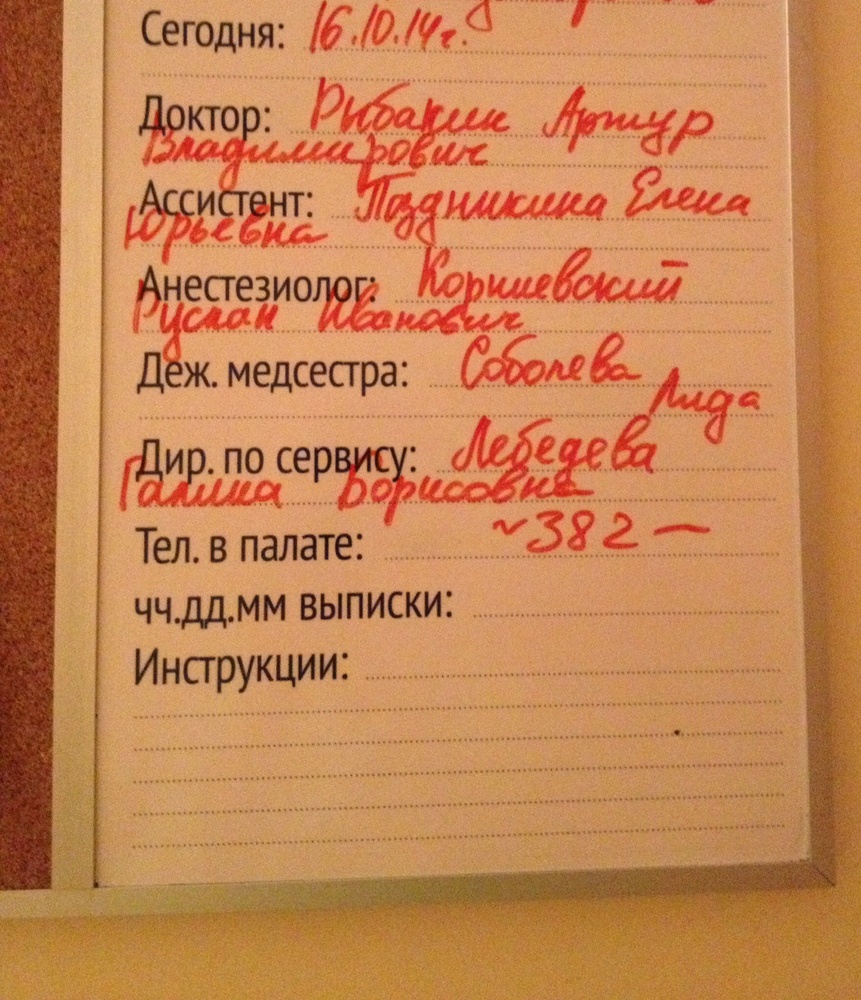 Сегодня: 16.10.14г.
Доктор: Рыбакин Артур
Владимирович
Ассистент: Поздникина Елена
Юрьевна
Анестезиолог: Корниевский
Руслан Иванович
Деж. медсестра: Соболева
Лида
Дир. по сервису: Лебедева
Галина Борисовна
Тел. в палате: ~382—
чч.дд.мм выписки:
Инструкции: